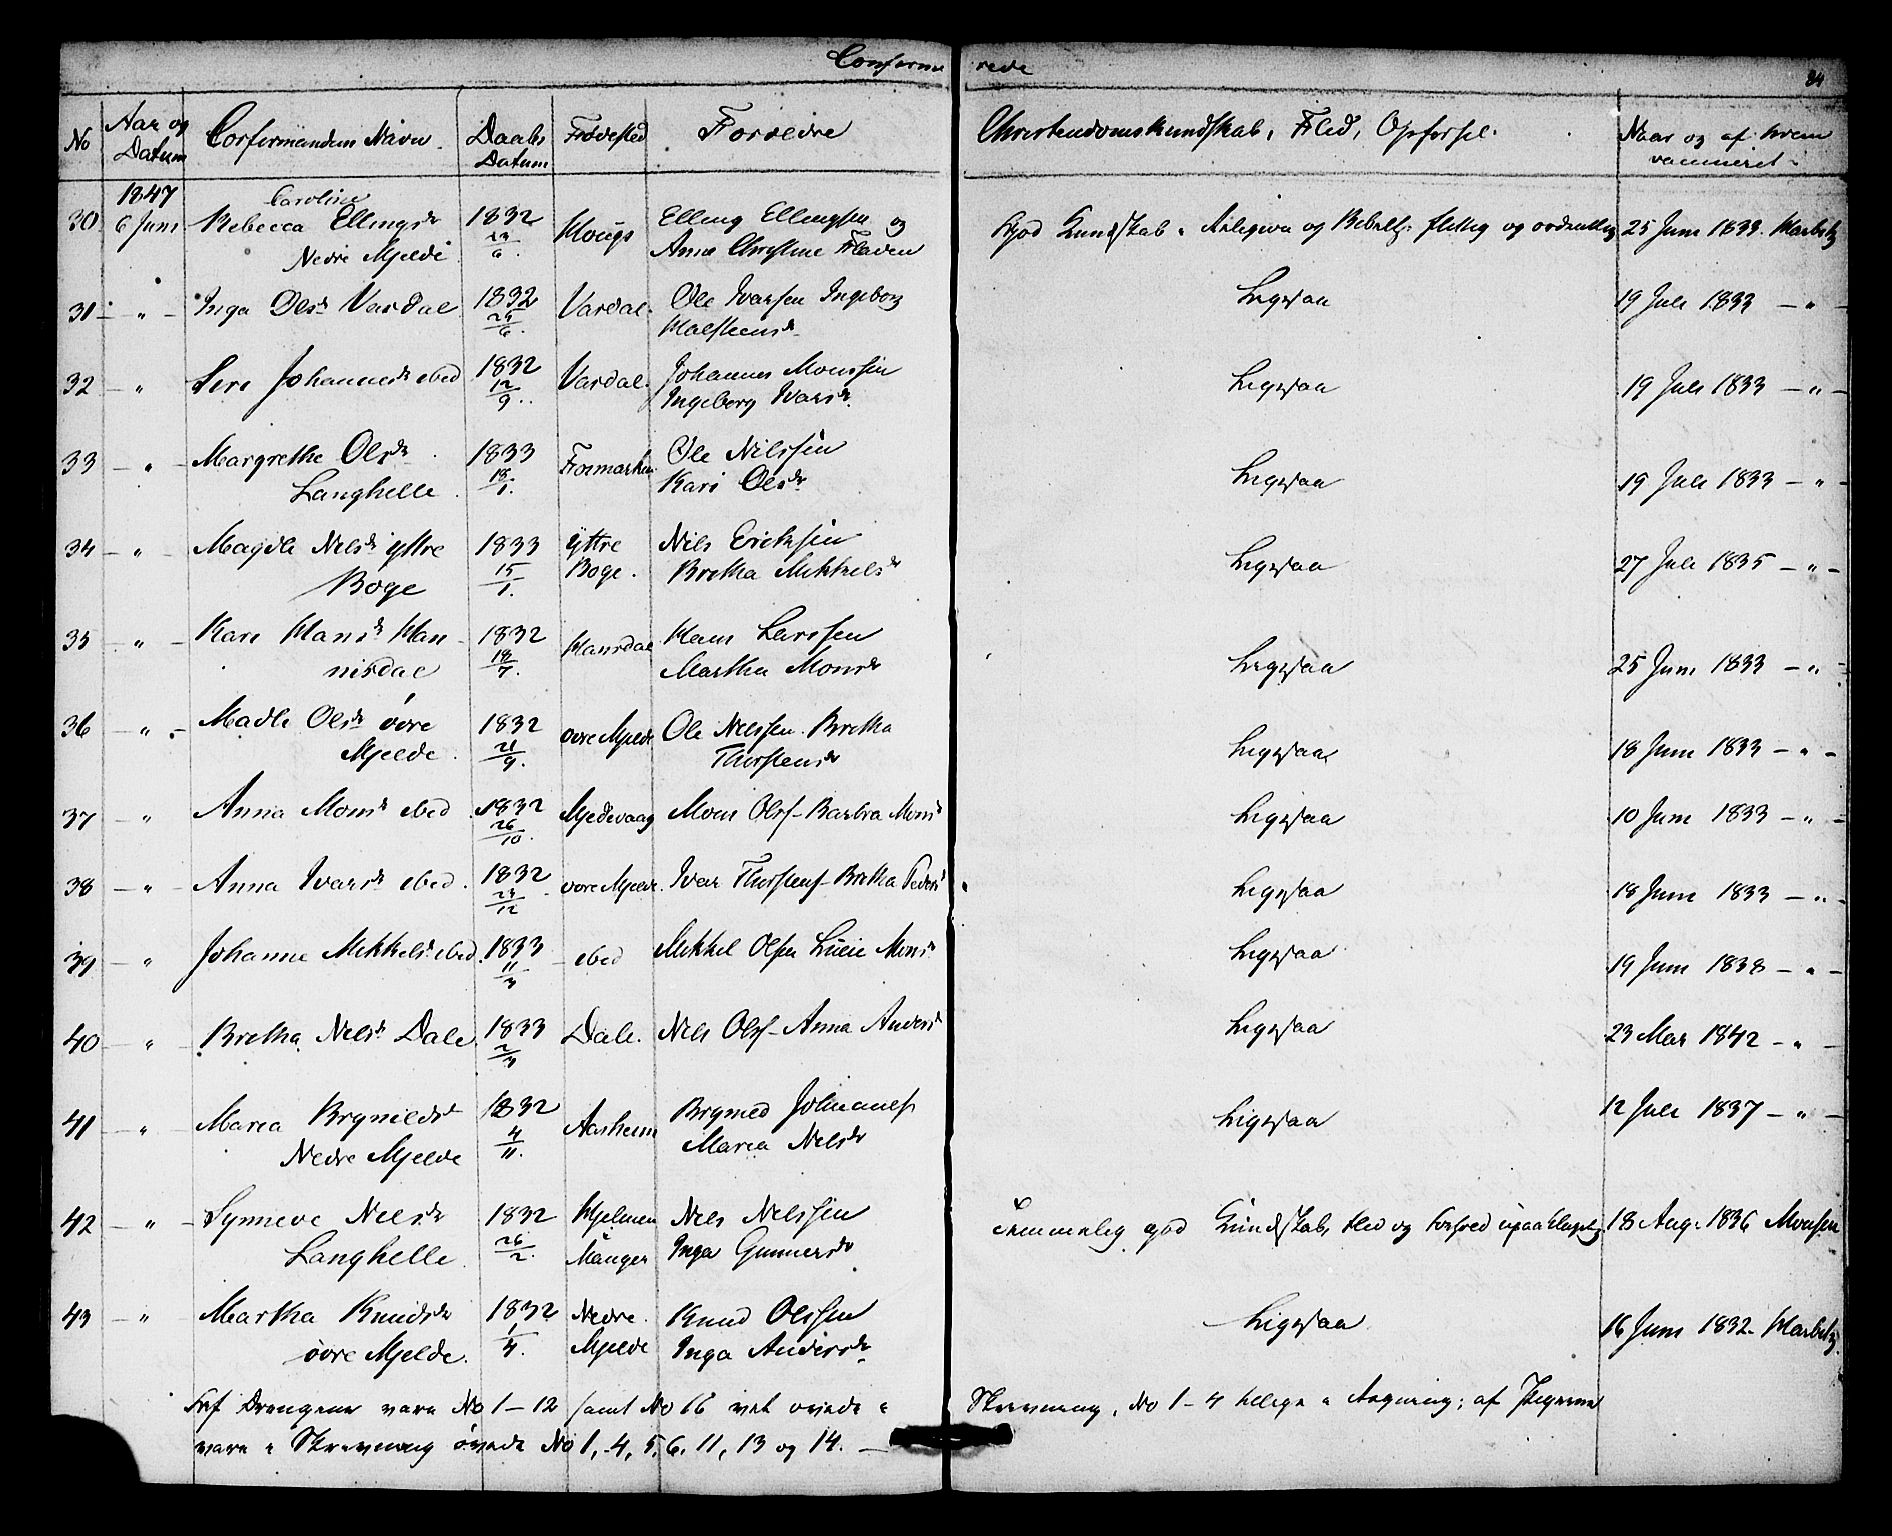 Conferme rede 84
No Aar og Datum Confirmandens Navn Daabs Datum Fødested Forældre Christendomskundskab, Flid, Opførsel. Naar og af hvem vaccineret
30. 1847 6 Juni Rebecca Caroline Ellingsdr Nedre Mjelde 1832 6. Hougs Elling Ellingsen og Anna Christine Fladen God Kundskab i Religion og flittig og ordentlig 25 Juni 1833.
31 - " - Inga Olsdr Vardal 1832 24/6 Vardal. Ole Ivarsen Ingeborg Ligesaa 19 Juli 1833 - " -
32 - " Johannesdr ibid 1832 12/9. Vardal. Johannes Monssen Ingeborg Ivarsdr. Ligesaa 19 Juli 1833 - " -
33 - " - Margrethe Olsdr Langhelle 1833 18/1. Ole Nilssen Kari Olsdr Ligesaa 19 Juli 1833 - " -
34 - " - Magdle Nilsdr yttre Boge 1833 15/1. Yttre Boge. Nils Eriksen Bretha Mikkelsdr Ligesaa 27 Juli 1835 - " -
35 - " - Kari Hansdr Han- nisdal 1832 18/7. Hansdal Hans Larssen Martha Monsdr Ligesaa 25 Juni 1833 - " -
36 - " - Madle Olsdr øvre Mjelde 1832 21/9. øvre Mjelde Ole Nilssen. Bretha Thorstensdr Ligesaa 18 Juni 1833 - " -
37 - " Anna Monsdr ibid 1832 26/10. Mjeldevaag Mons Olss- Barbra Monsdr Ligesaa 10 Juni 1833 - " -
38 - " - Anna Ivarsdr ibid. 1832 12 øvre Mjelde. Ivar Thorstens- Bretha Pedersdr Ligesaa 18 Juni 1833 - " -
39 - " Johanne Mikkelsdr ibid. 1833 11/3 ibid Mikkel Olsen Lucie Monsdr Ligesaa 19 Juni 1838 - " -
40 - " - Bretha Nilsdr Dale 1833 2/3 Dale. Nils Olss- Anna Andersdr Ligesaa 23 Mar 1842 - " -
41 - " - Maria Brynildsdr Nedre Mjelde 1832 4/11. Aasheim Brynild Johannes Maria Nilsdr Ligesaa 12 Juli 1837 - " -
42 - " - Synneve Nilsdr Langhelle 1832 26/2. Hjelmen Manger Nils Nilssen Inga Gunnersdr Temmelig god Kundskab, Flid og 18 Aug. 1836 Monsen
43 - " Martha Knudsdr øvre Mjelde. 1832 1/4. Nedre Mjelde Knud Olssen Inga Andersdr Ligesaa 16 Juni 1832.
Af Drengene vare No 1-12 samt No 16 vel øvede i Skrivning, No 1-4 tillige i Regning; af Pigerne
vare i Skrivning øvede No 1, 4, 5, 6, 11, 13 og 14. -